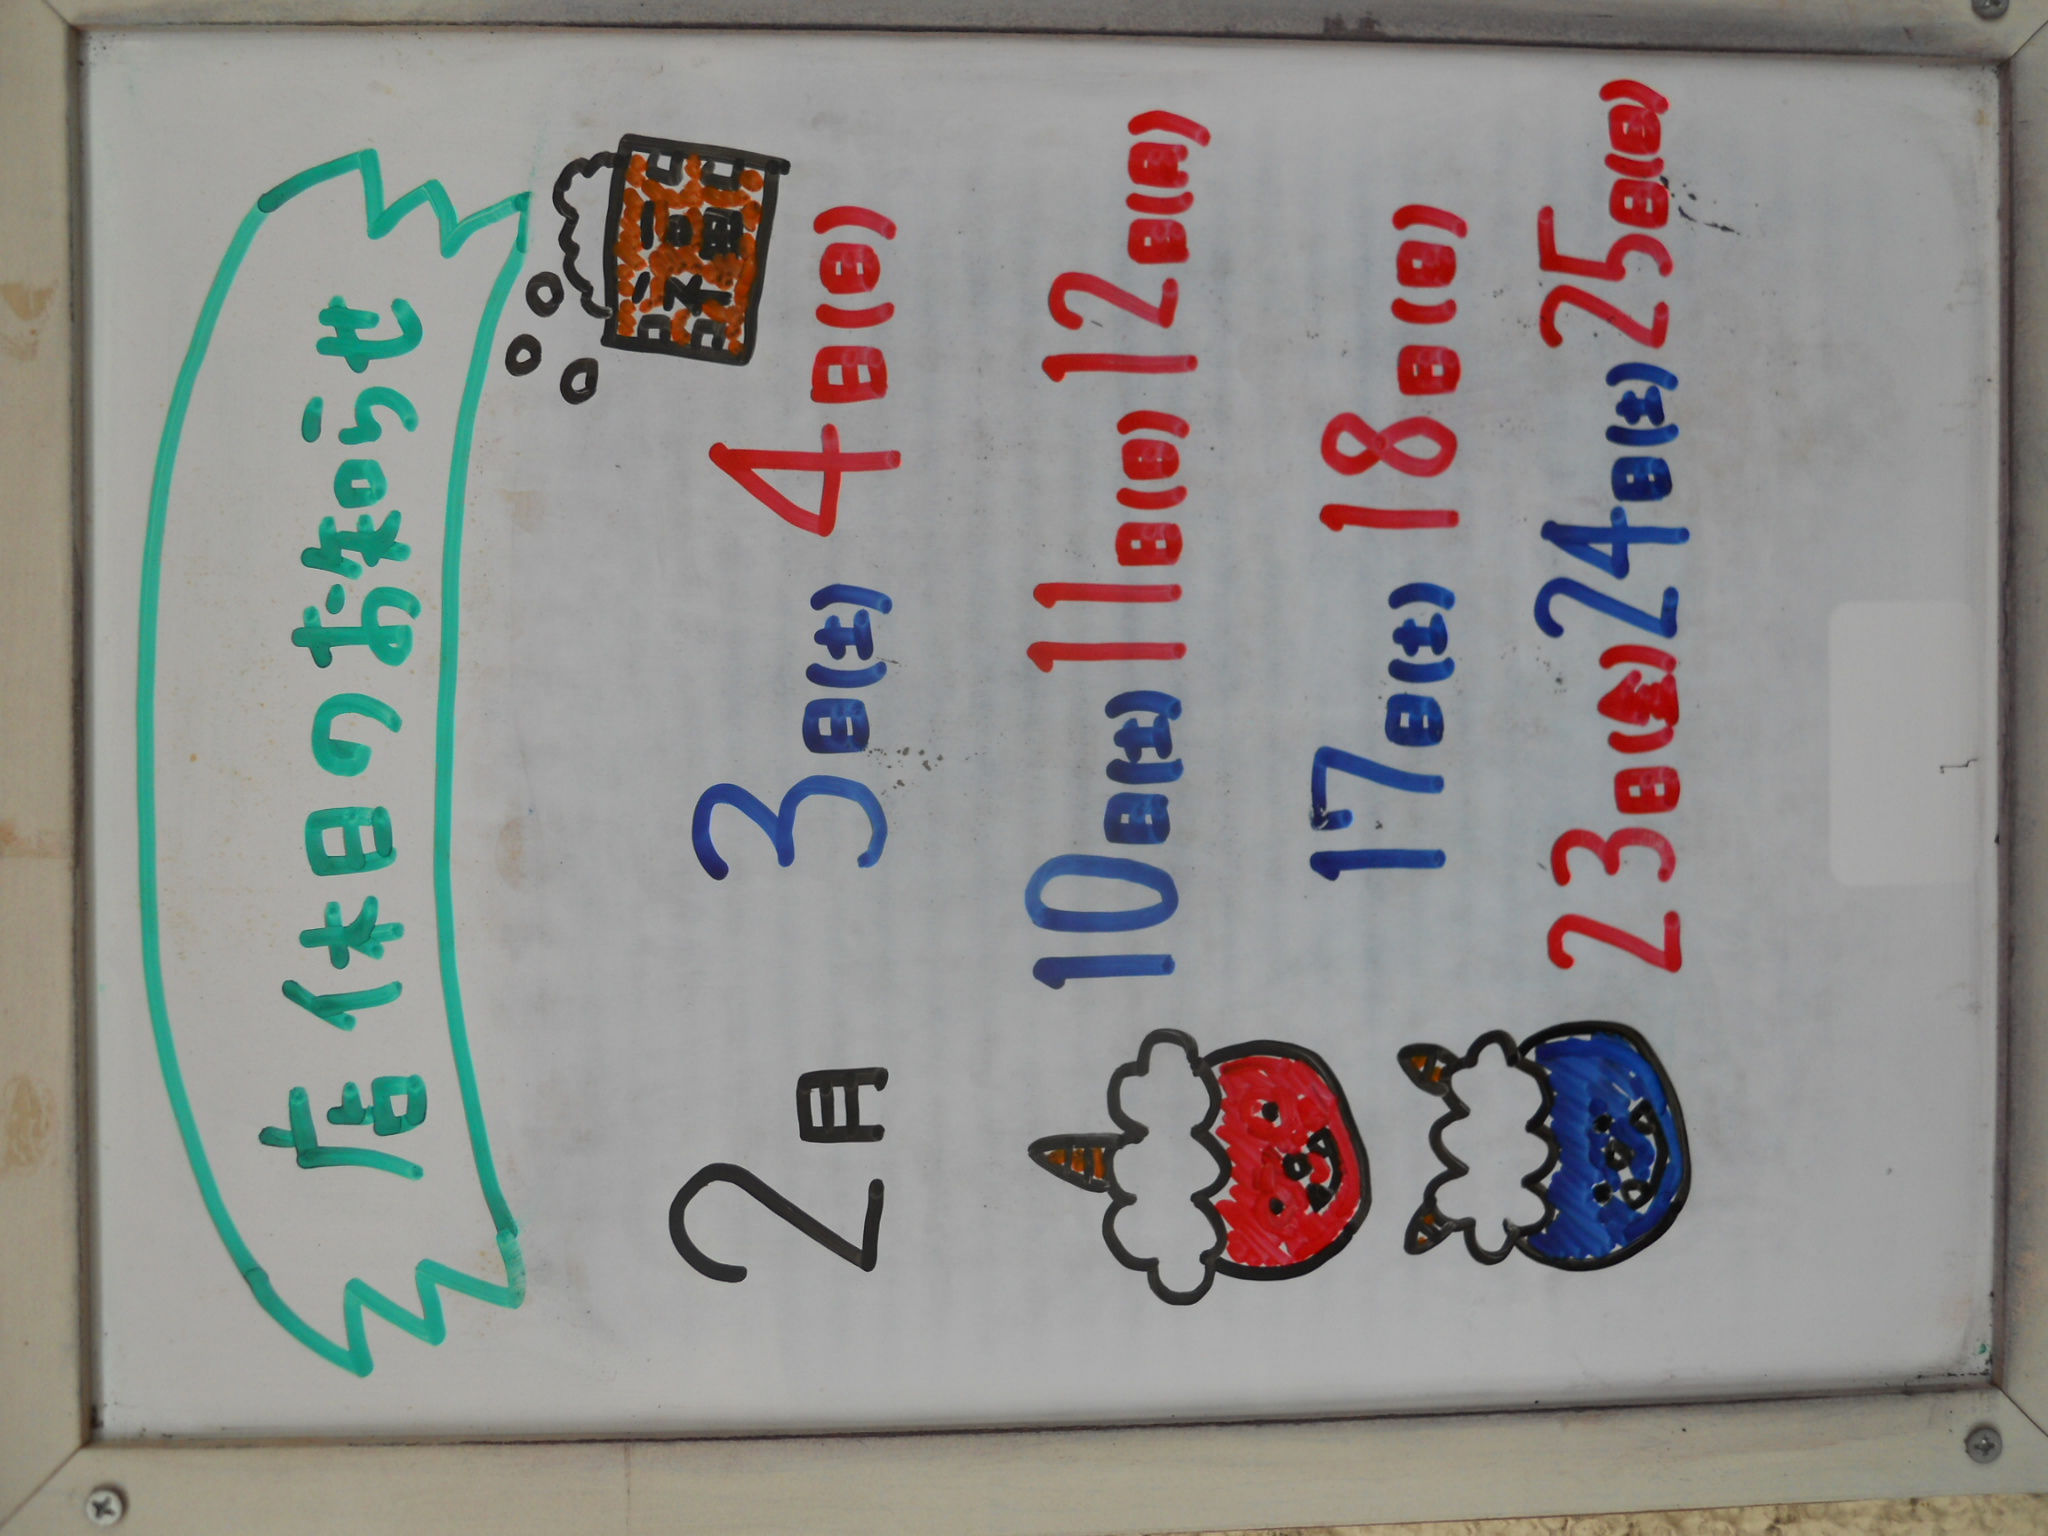 店休日のお知らせ
福
2月 3日(土) 4日(日)
10日(土) 11日(日) 12日(月)
17日(土) 18日(日)
23日(金) 24日(土) 25日(日)